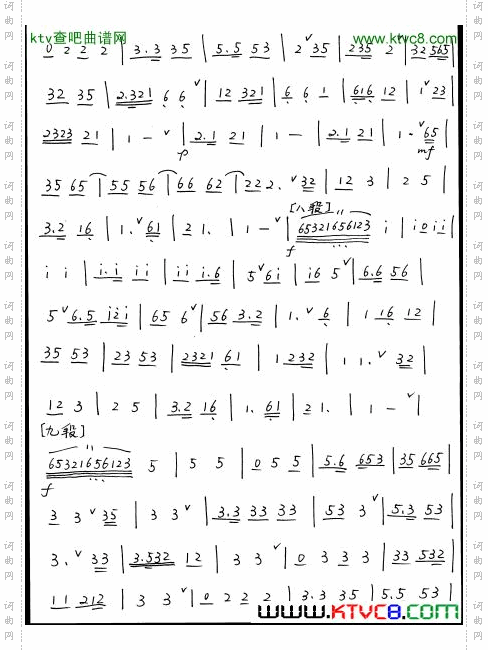 ktv查吧曲谱网 www.ktvc8.com
0 2 2 2 | 3.3 35 | 5.5 53 | 2ˇ35 | 235 2ˇ| 32 565 |
32 35 | 2.321 6 6ˇ| 12 321 | 6 6 1 | 616 12 | 1ˇ23 |
2323 21 | 1 - ˇ| 2.1 21 | 1 - | 2.1 21 | 1-ˇ65 |
p mf
35 65 | 55 56 | 66 62 | 222.ˇ32 | 12 3 | 2 5 |
[八段]
3.2 16 | 1.ˇ61 | 21. | 1-ˇ| 65321656123 i | i0ii |
f
i i | i.i ii | ii i.6 | 5ˇ6i | i6 5ˇ| 6.6 56 |
5ˇ6.5 i2i | 65 6ˇ| 56 3.2 | 1.ˇ6 | 1 16 12 |
35 53 | 23 53 | 2321 61 | 1 232 | 1 1.ˇ32 |
12 3 | 2 5 | 3.2 16 | 1. 61 | 21. | 1-ˇ|
[九段]
65321656123 5 | 5 5 | 0 5 5 | 5.6 653 | 35 665 |
f
3 3ˇ35 | 3 3ˇ| 3.3 33 33 | 53 3ˇ| 5.3 53 |
3.ˇ33 | 3.532 12 | 3 3ˇ| 0 3 3 3 | 33 532 |
11 212 | 3 3ˇ| 0 2 2 2 | 3.3 35 | 5.5 53 |
www.KTVC8.com
词曲网